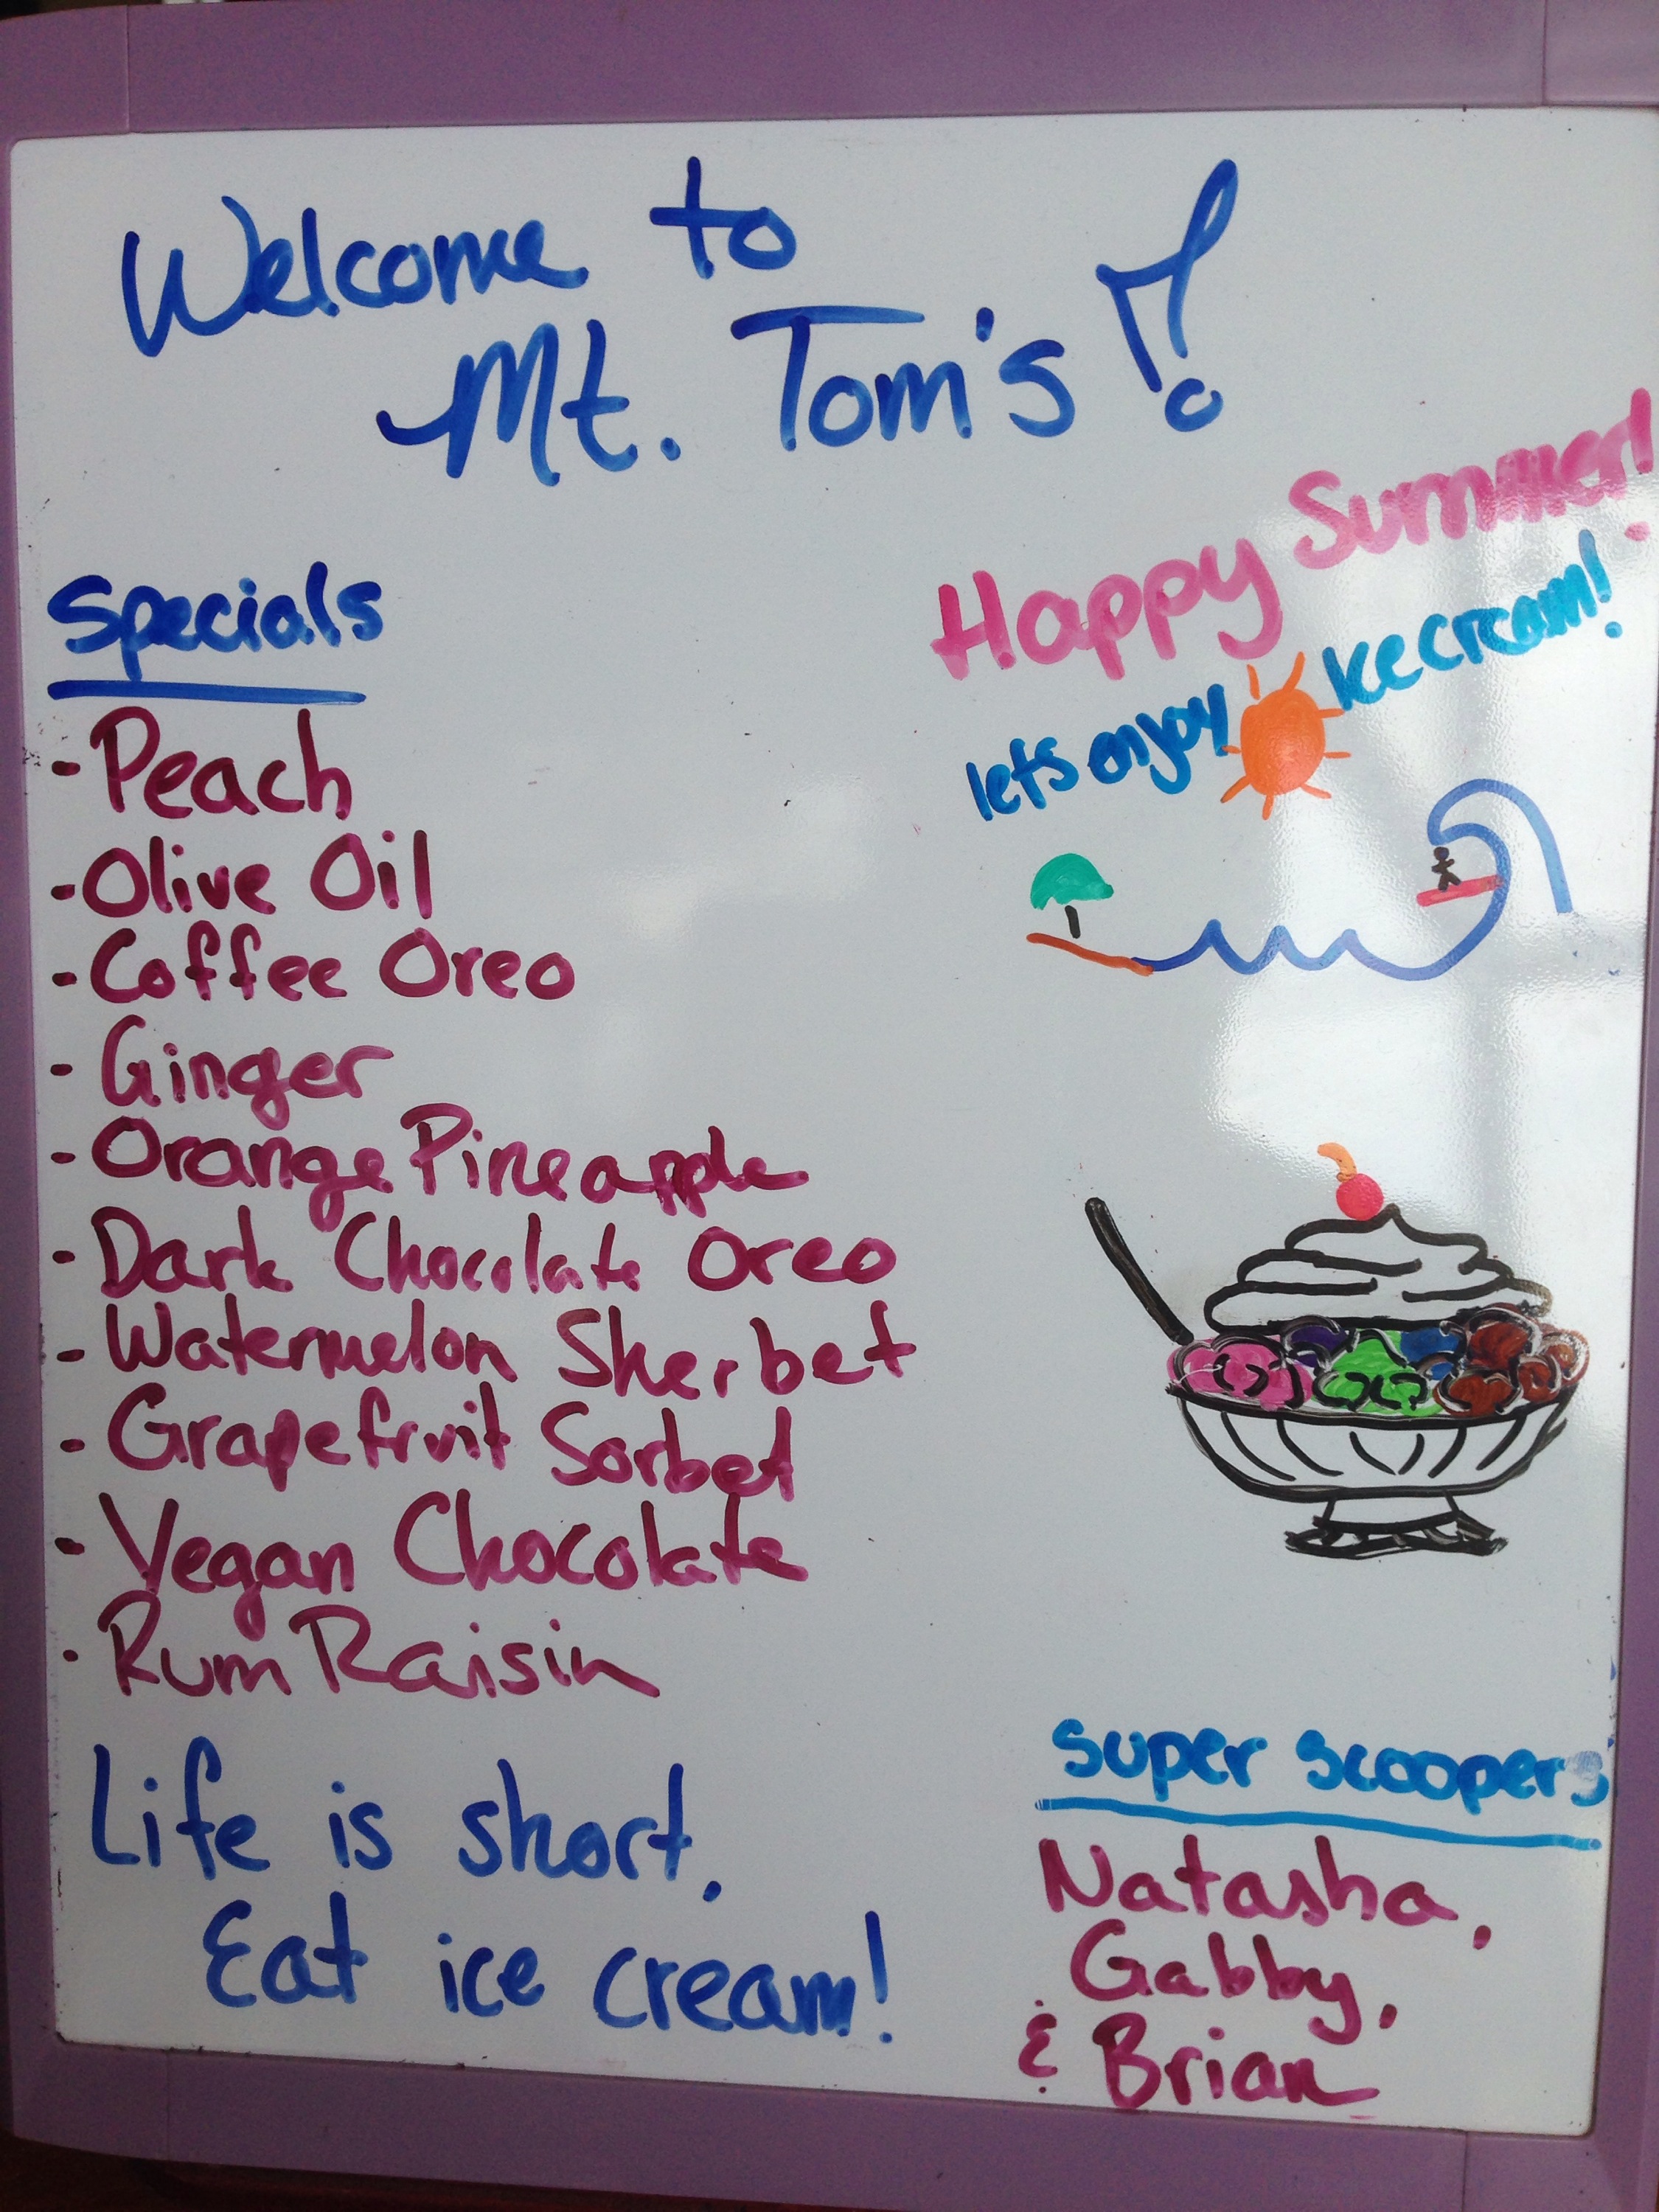 Welcome to
Mt. Tom's!
Happy Summer!
lets enjoy Ice cream!
Specials
- Peach
- Olive Oil
- Coffee Oreo
- Ginger
- Orange Pineapple
- Dark Chocolate Oreo
- Watermelon Sherbet
- Grapefruit Sorbet
- Vegan Chocolate
- Rum Raisin
Life is short,
Eat ice cream!
Super Scoopers
Natasha,
Gabby,
& Brian